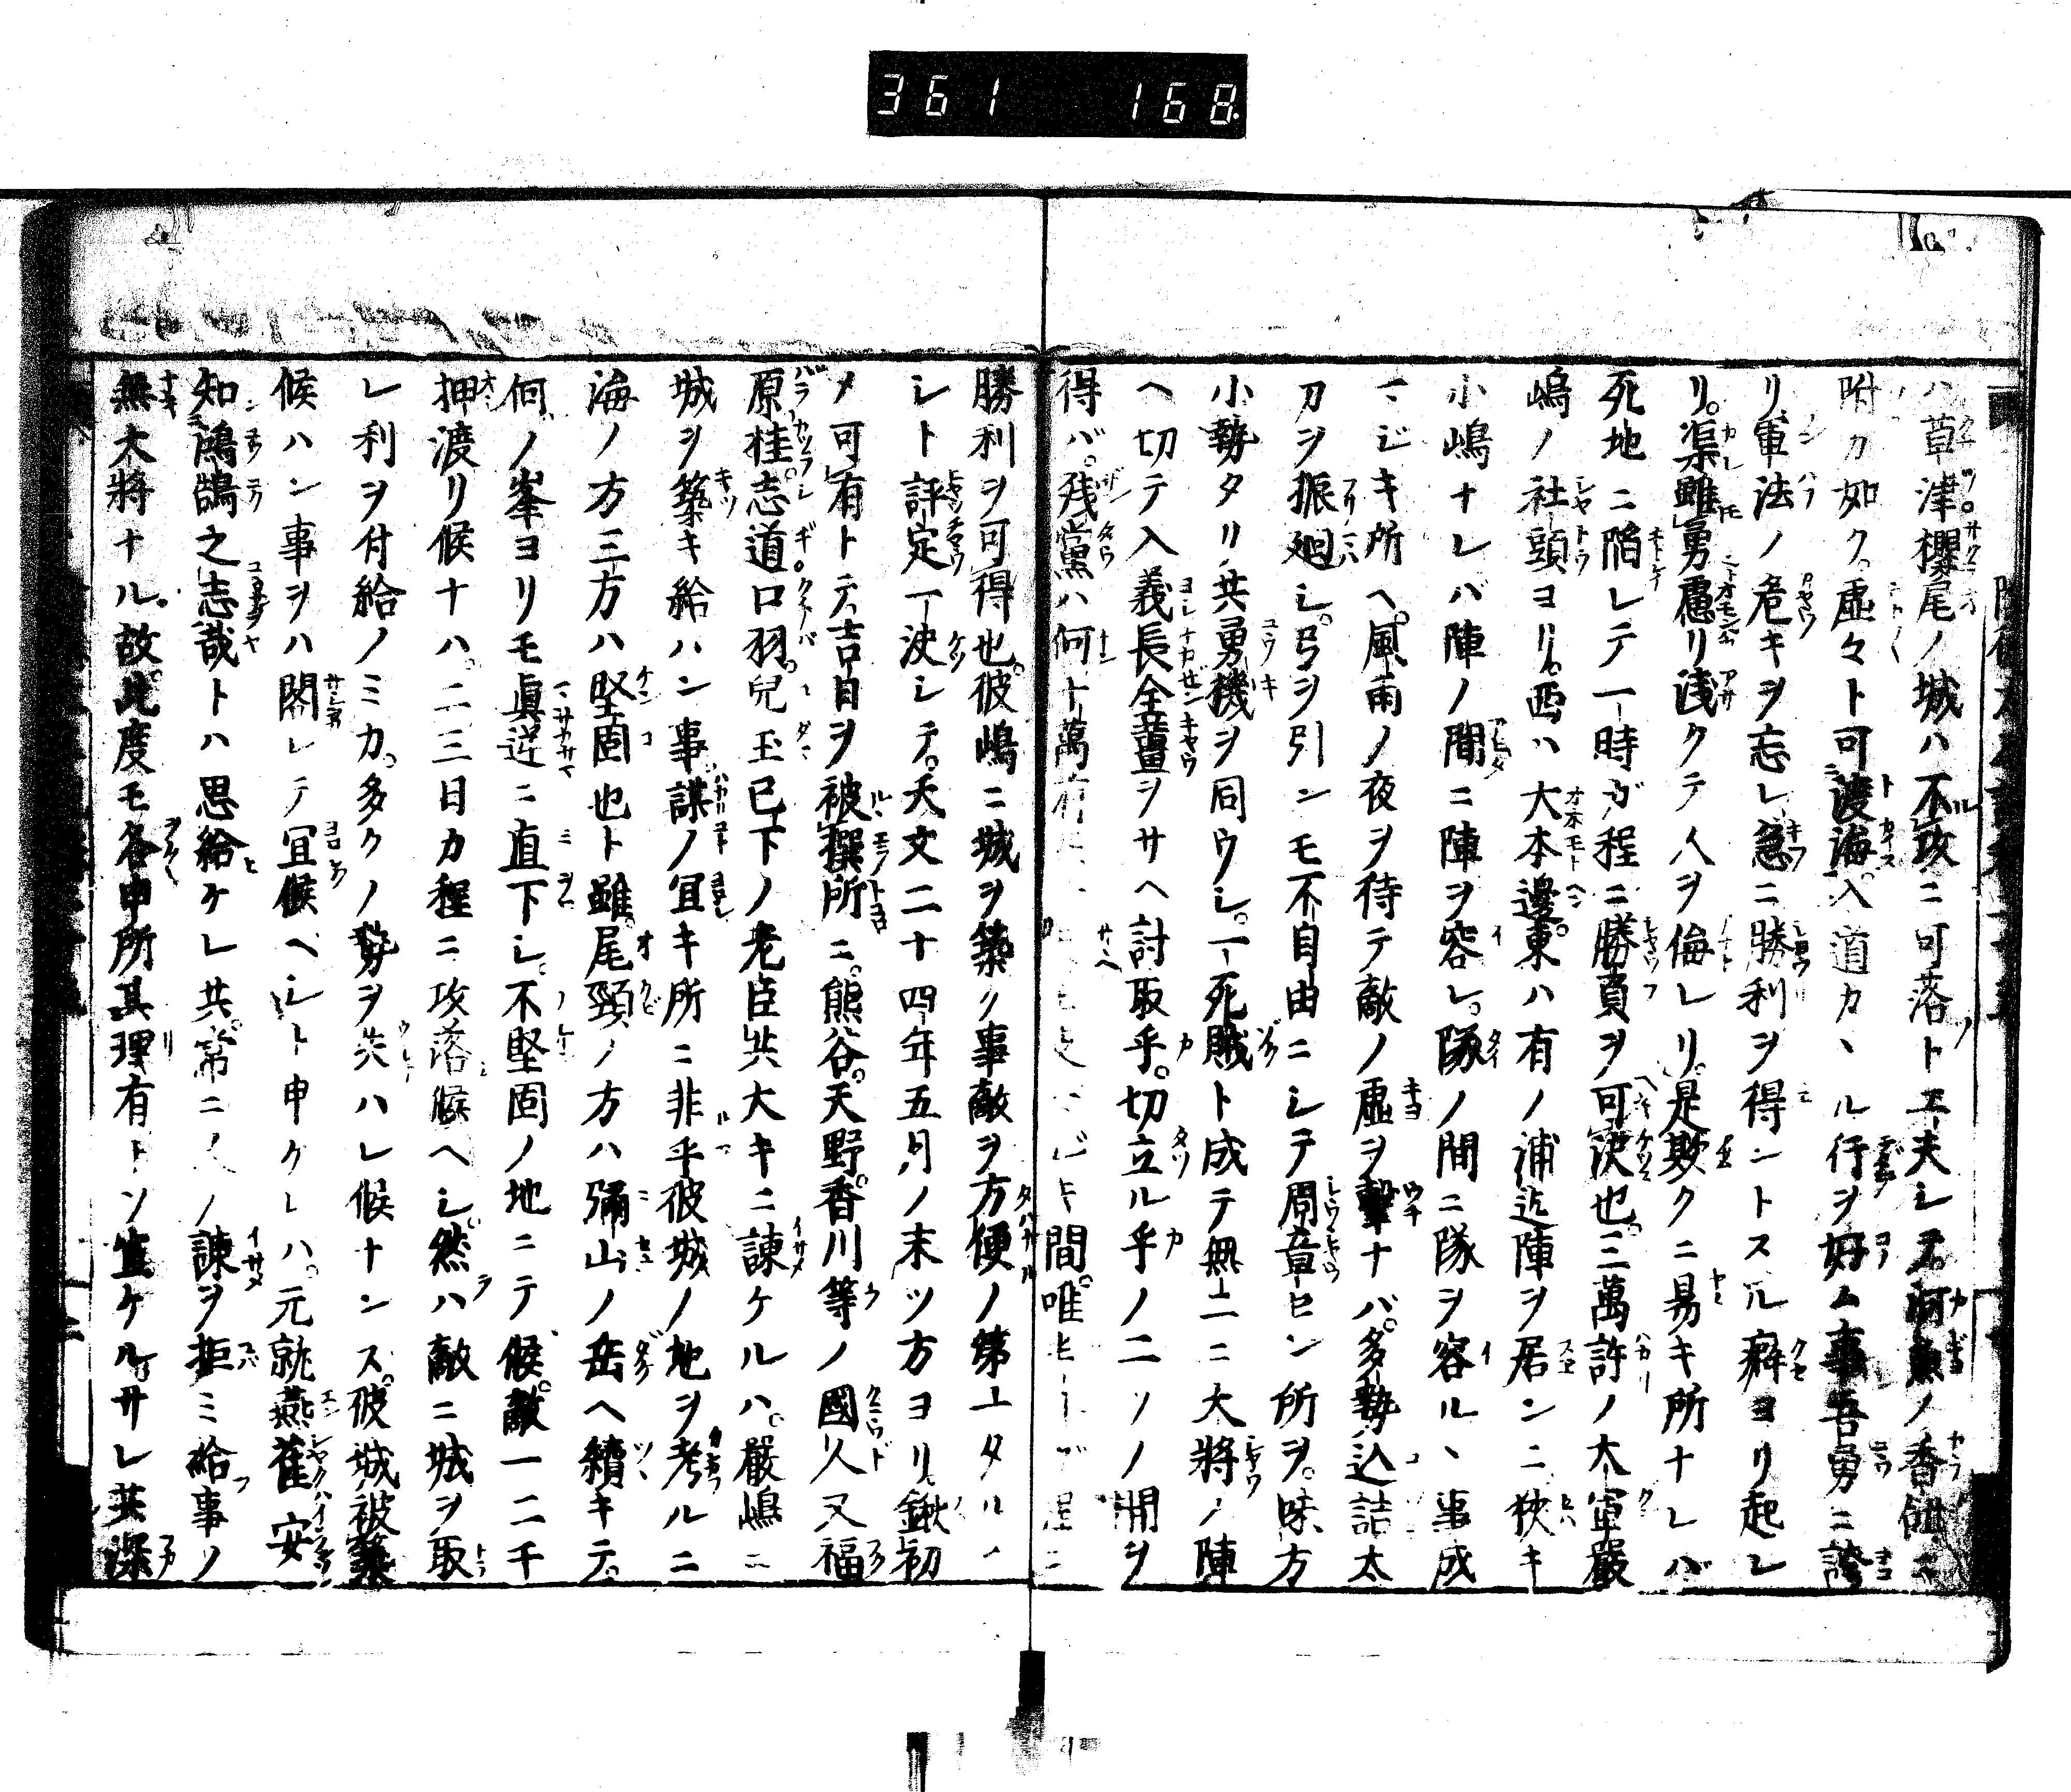 361 168
ハ草津櫻尾ノ城ハ不攻ニ可落ト工夫シテ河魚ノ香餌ニ
附カ如ク。虚々ト可渡海。入道カヽル行ヲ好ム事吾勇ニ誇
リ軍法ノ危キヲ忘レ急ニ勝利ヲ得ントスル癖ヨリ起レ
リ。渠雖勇慮リ浅クテ人ヲ侮レリ。是欺クニ易キ所ナレバ
死地ニ陥レテ一時ガ程ニ勝負ヲ可決也。三萬許ノ大軍嚴
嶋ノ社頭ヨリ。西ハ大本邊。東ハ有ノ浦迄陣ヲ居ンニ狹キ
小嶋ナレバ陣ノ間ニ陣ヲ容レ。隊ノ間ニ隊ヲ容ルヽ事成
マジキ所ヘ。風雨ノ夜ヲ待テ敵ノ虚ヲ撃ナバ。多勢込詰太
刀ヲ振廻シ。弓ヲ引ンモ不自由ニシテ周章ヒン所ヲ。味方
小勢タリ共勇機ヲ同ウシ。一死賊ト成テ無二ニ大將ノ陣
ヘ切テ入義長全薑ヲサヘ討取乎。切立ル乎ノ二ツノ開ヲ
得バ。残黨ハ何十萬有 ジキ間。唯 程ニ
勝利ヲ可得也。彼嶋ニ城ヲ築ク事敵ヲ方便ノ第一タルヘ
シト評定一決シテ。天文二十四年五月ノ末ツ方ヨリ。鍬初
メ可有トテ吉日ヲ被撰所ニ。熊谷。天野。香川等ノ國人又福
原桂。志道口羽。兒玉已下ノ老臣共大キニ諫ケルハ。嚴嶋ニ
城ヲ築キ給ハン事謀ノ宜キ所ニ非乎彼城ノ地ヲ考ルニ
海ノ方三方ハ堅固也ト雖。尾頸ノ方ハ彌山ノ岳ヘ續キテ。
何ノ峯ヨリモ眞逆ニ直下シ。不堅固ノ地ニテ候。敵一二千
押渡リ候ナハ。二三日カ程ニ攻落候ヘシ然ハ敵ニ城ヲ取
レ利ヲ付給ノミカ。多クノ勢ヲ失ハレ候ナンス。彼城被築
候ハン事ヲハ閣レテ宜候ヘシト申ケレハ。元就燕雀安
知鴻鵠之志哉トハ思給ケレ共。常ニ人ノ諫ヲ拒ミ給事ノ
無大將ナル。故。此度モ各申所其理有トソ宣ケル。サレ共深